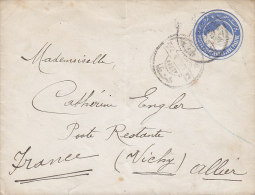 Mademoiselle,
Catherine Engler
Poste Restante
(Vichy) Allier
France